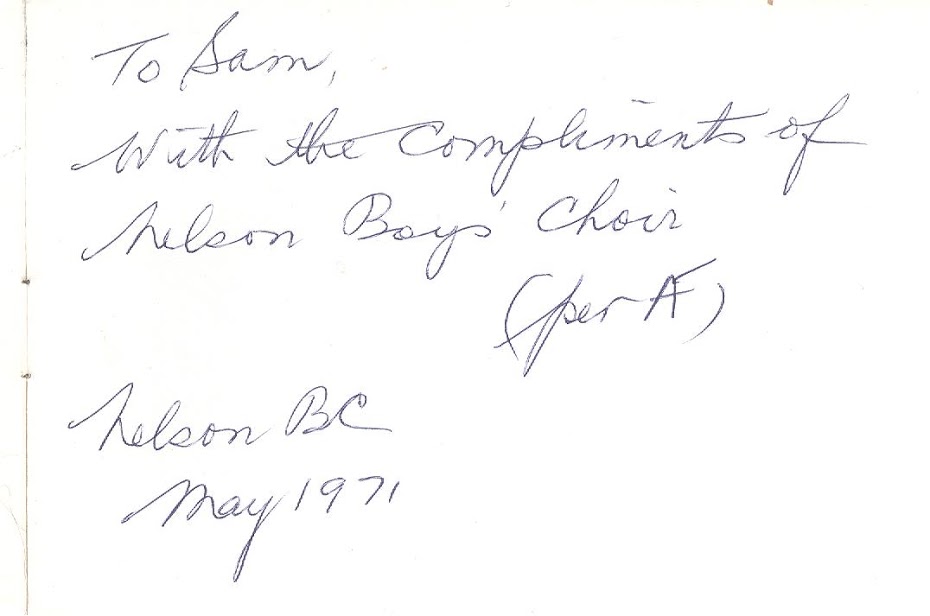 To Sam,
With the Compliments of
Nelson Boys' Choir
(per AF)
Nelson BC
May 1971